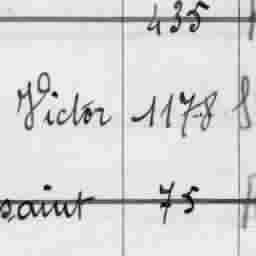 435
Victor 1178
saint 75